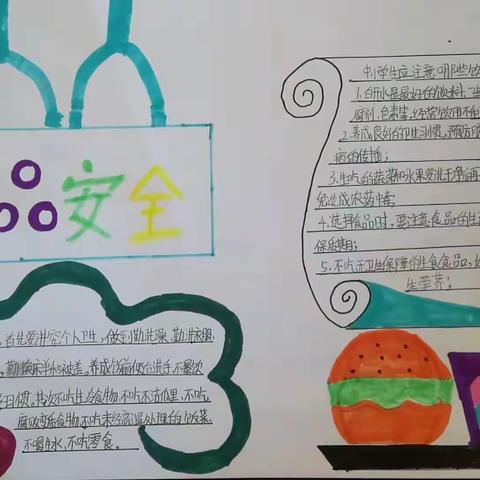 品安全
中小学生应注意哪些饮
1.白开水是最好的饮料,一些
腐剂、色素等,经常饮用不
2.养成良好的卫生习惯,预防
病的传播;
3.生吃的蔬菜和水果要洗干净再
免造成农药中毒;
4.选择食品时,要注意食品的生
保质期;
5.不吃无卫生保障的生食食品,如
生荤荠;
首先要讲究个人卫生,做到勤洗澡、勤洗衣服、
勤换床单和被盖,养成饭前便后洗手、不暴饮
习惯。其次不吃生冷食物、不吃不洁瓜果、不吃
腐败变质食物、不吃未经高温处理的饭菜、
不喝生水、不吃零食。